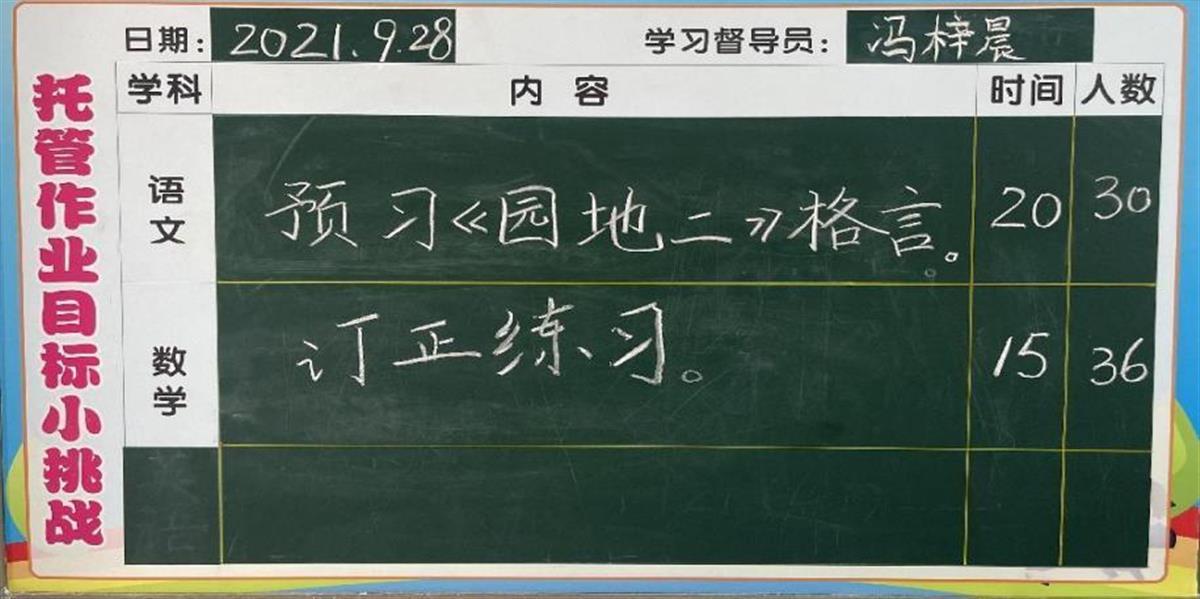 托管作业目标小挑战
日期: 2021.9.28 学习督导员: 冯梓晨
学科 内容 时间 人数
语文 预习《园地二》格言。 20 30
数学 订正练习。 15 36